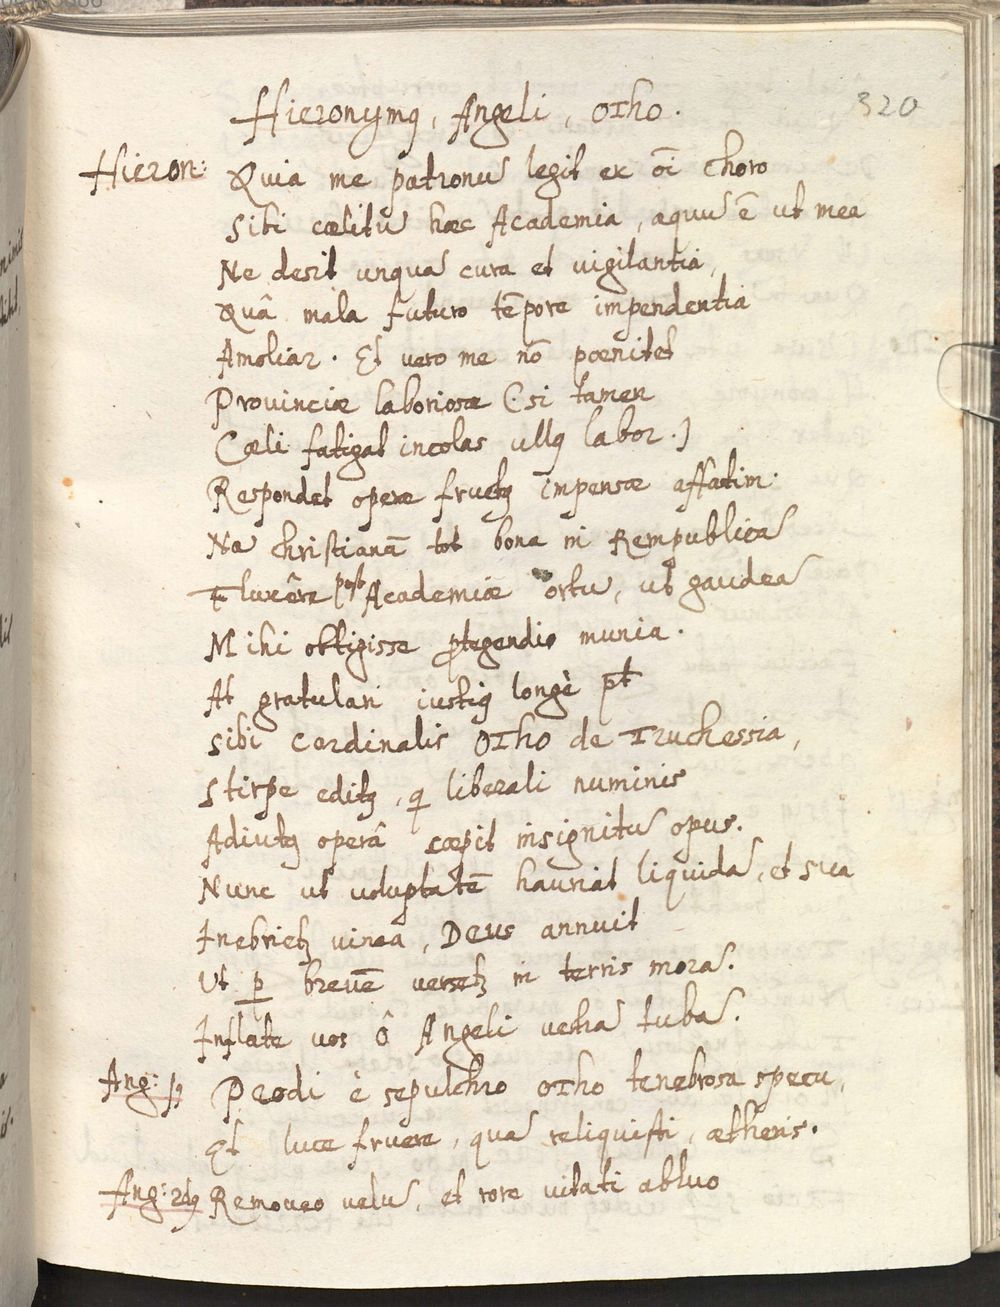 320
Hieronymꝰ, Angeli, Otho.
Hieron: Quia me patronũ legit ex oĩ choro
Sibi cælitũ hæc Academia, æquũ ẽ ut mea
Ne desit unquã cura et uigilantia,
Quâ mala futuro tẽpore impendentia
Amoliar. Et vero me nõ poenitet
Prouinciæ laboriosæ (si tamen
Cœli fatigat incolas ullꝰ labor.)
Respondet operæ fructꝰ impensæ affatim:
Nã christianã tot bona in Rempublicã
Fluxêre post Academiæ ortũ, ut gaudeã
Mihi obtigisse ꝓtegendio munia.
At gratulari iustiꝰ longè pt̃
Sibi Cardinalis Otho de Truchessia,
Stirpe editꝰ, q̃ liberali numinis
Adiutꝰ operâ cœpit insignitũ opus.
Nunc ut uoluptatẽ hauriat liquidã, et sua
Inebrietꝰ uinea, Deus annuit
Ut ꝑ breuẽ versetꝰ in terris morã.
Inflate uos ô Angeli vestrã tubã.
Ang: 1ꝰ Prodi è sepulchro Otho tenebrosa specu,
Et luce fruere, quã reliquisti, ætheris.
Ang: 2dꝰ Remoueo uelũ, et rore uitali abluo